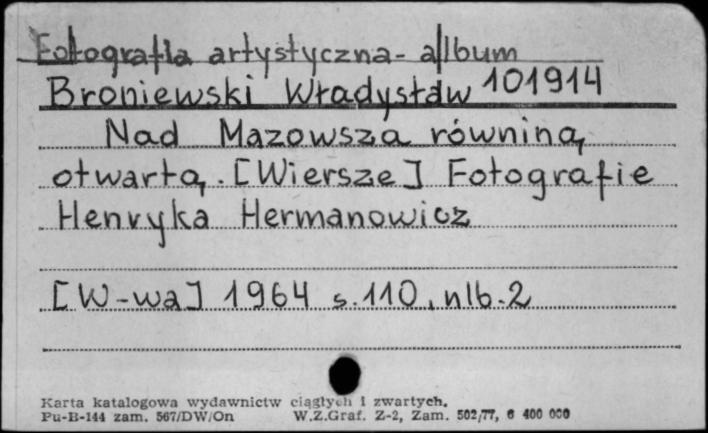 Fotografia artystyczna - album
Broniewski Władysław 101914
Nad Mazowsza równiną
otwartą. [Wiersze] Fotografie
Henryka Hermanowicz
[W-wa] 1964 s. 110, nlb. 2
Karta katalogowa wydawnictw ciągłych i zwartych.
Pu-B-144 zam. 567/DW/On W.Z.Graf. Z-2, Zam. 502/77, 6 400 000